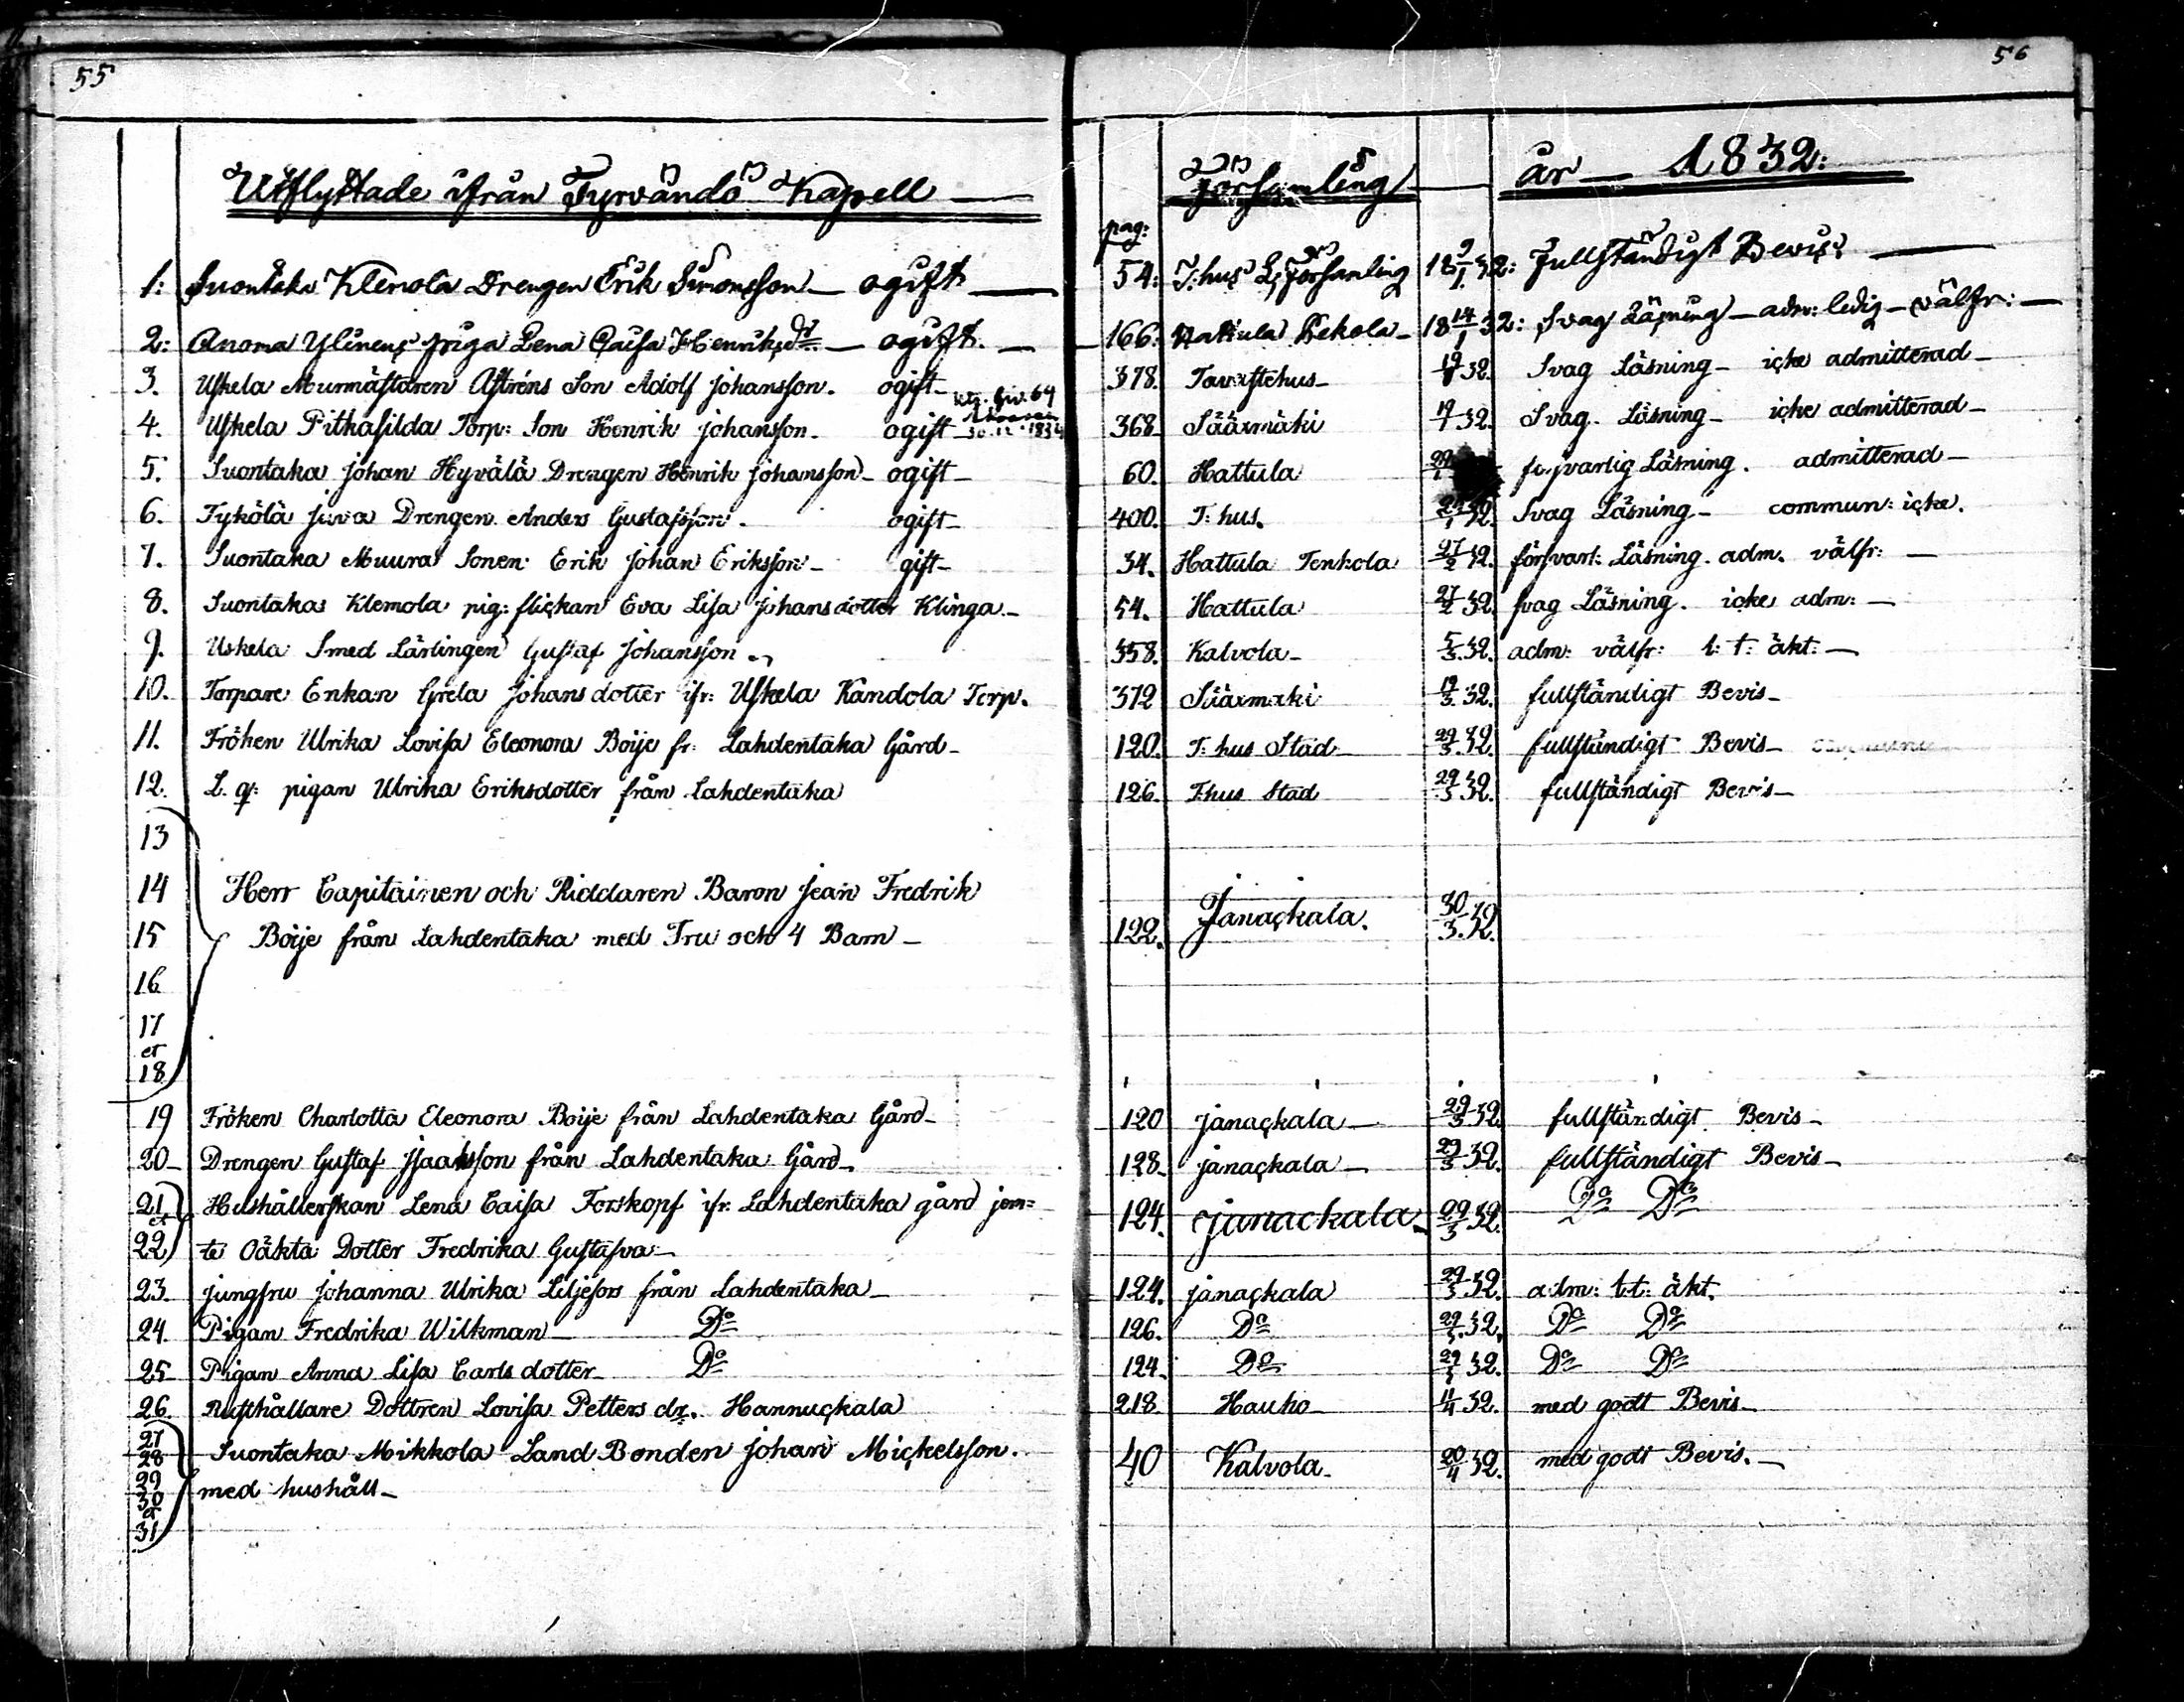 55
56
Utflyttade ifrån Tyrvändö Kapell — Församling — år — 1832:
pag:
1: Suontaka Klemola Drengen Erik Simonsson — ogift — 54: T:hus L: Församling 18 9/1 32: Fullständigt Bevis —
2: Anoma Ylinens piga Lena Caisa Henriksdr — ogift. — 166. Hattula Pekola — 18 14/1 32: Svag Läsning — adm: ledig — välfr: —
3. Uskela Murmästaren Astréns Son Adolf Johansson. ogift — 378. Tavastehus — 19/1 32. Svag Läsning — icke admitterad —
4. Uskela Pitkäsilda Torp: Son Henrik Johansson. ogift — 30.12.1834 368 Sääxmäki 19/1 32. Svag Läsning — icke admitterad —
5. Suontaka Johan Hyvälä Drengen Henrik Johansson — ogift — 60. Hattula försvarlig Läsning. admitterad —
6. Tykölä Juva Drengen Anders Gustafsson. ogift — 400. T: hus. 29/1 32. Svag Läsning — commun: icke.
7. Suontaka Muura Sonen Erik Johan Eriksson — gift — 34. Hattula Tenhola 27/2 32. försvarl: Läsning. adm. välfr: —
8. Suontaka Klemola pig: flickan Eva Lisa Johansdotter Klinga. — 54. Hattula 27/2 32. svag Läsning. icke adm: —
9. Uskela Smed Lärlingen Gustaf Johansson 358. Kalvola — 5/3 32. adm: välfr: l: t: äkt: —
10. Torpare Enkan Greta Johansdotter ifr: Uskela Kandola Torp. 372 Sääxmäki 19/3 32. fullständigt Bevis —
11. Fröken Ulrika Lovisa Eleonora Boije fr: Lahdentaka Gård — 120. T: hus Stad — 29/3 32. fullständigt Bevis —
12. L. q: pigan Ulrika Eriksdotter från Lahdentaka 126. T:hus Stad 29/3 32. fullständigt Bevis —
13
14 Herr Capitainen och Riddaren Baron Jean Fredrik
15 Boije från Lahdentaka med Fru och 4 Barn — 122. Janackala. 30/3. 32.
16
17
et
18
19 Fröken Charlotta Eleonora Boije från Lahdentaka Gård — 120 Janackala — 29/3 32. fullständigt Bevis —
20 — Drengen Gustaf Isaaksson från Lahdentaka Gård — 128. Janackala — 29/3 32. fullständigt Bevis —
21 et Hushållerskan Lena Caisa Forskopf ifr: Lahdentaka gård jem= 124. Janackala — 29/3 32. Do Do
22 te Oäkta Dotter Fredrika Gustafva —
23. Jungfru Johanna Ulrika Liljefors från Lahdentaka — 124. Janackala 29/3 32. adm: l.t: äkt.
24. Pigan Fredrika Wilkman — Do 126. Do 29/3. 32. Do Do
25 Pigan Anna Lisa Carlsdotter — Do 124. Do 29/3 32. Do Do
26. Rusthållare Dottren Lovisa Petters dr. Hannuckala 218. Hauho — 11/4 32. med godt Bevis —
27
28 Suontaka Mikkola Land Bonden Johan Mickelsson. 40 Kalvola — 20/4 32. med godt Bevis. —
29
30 med hushåll —
et
31